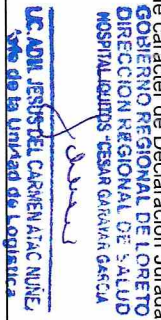 de carácter de Declaración Jurada
GOBIERNO REGIONAL DE LORETO
DIRECCION REGIONAL DE SALUD
HOSPITAL IQUITOS "CESAR GARAYAR GARCIA
LIC. ADM. JESUS DEL CARMEN AYAC NUÑEZ
Jefe de la Unidad de Logistica